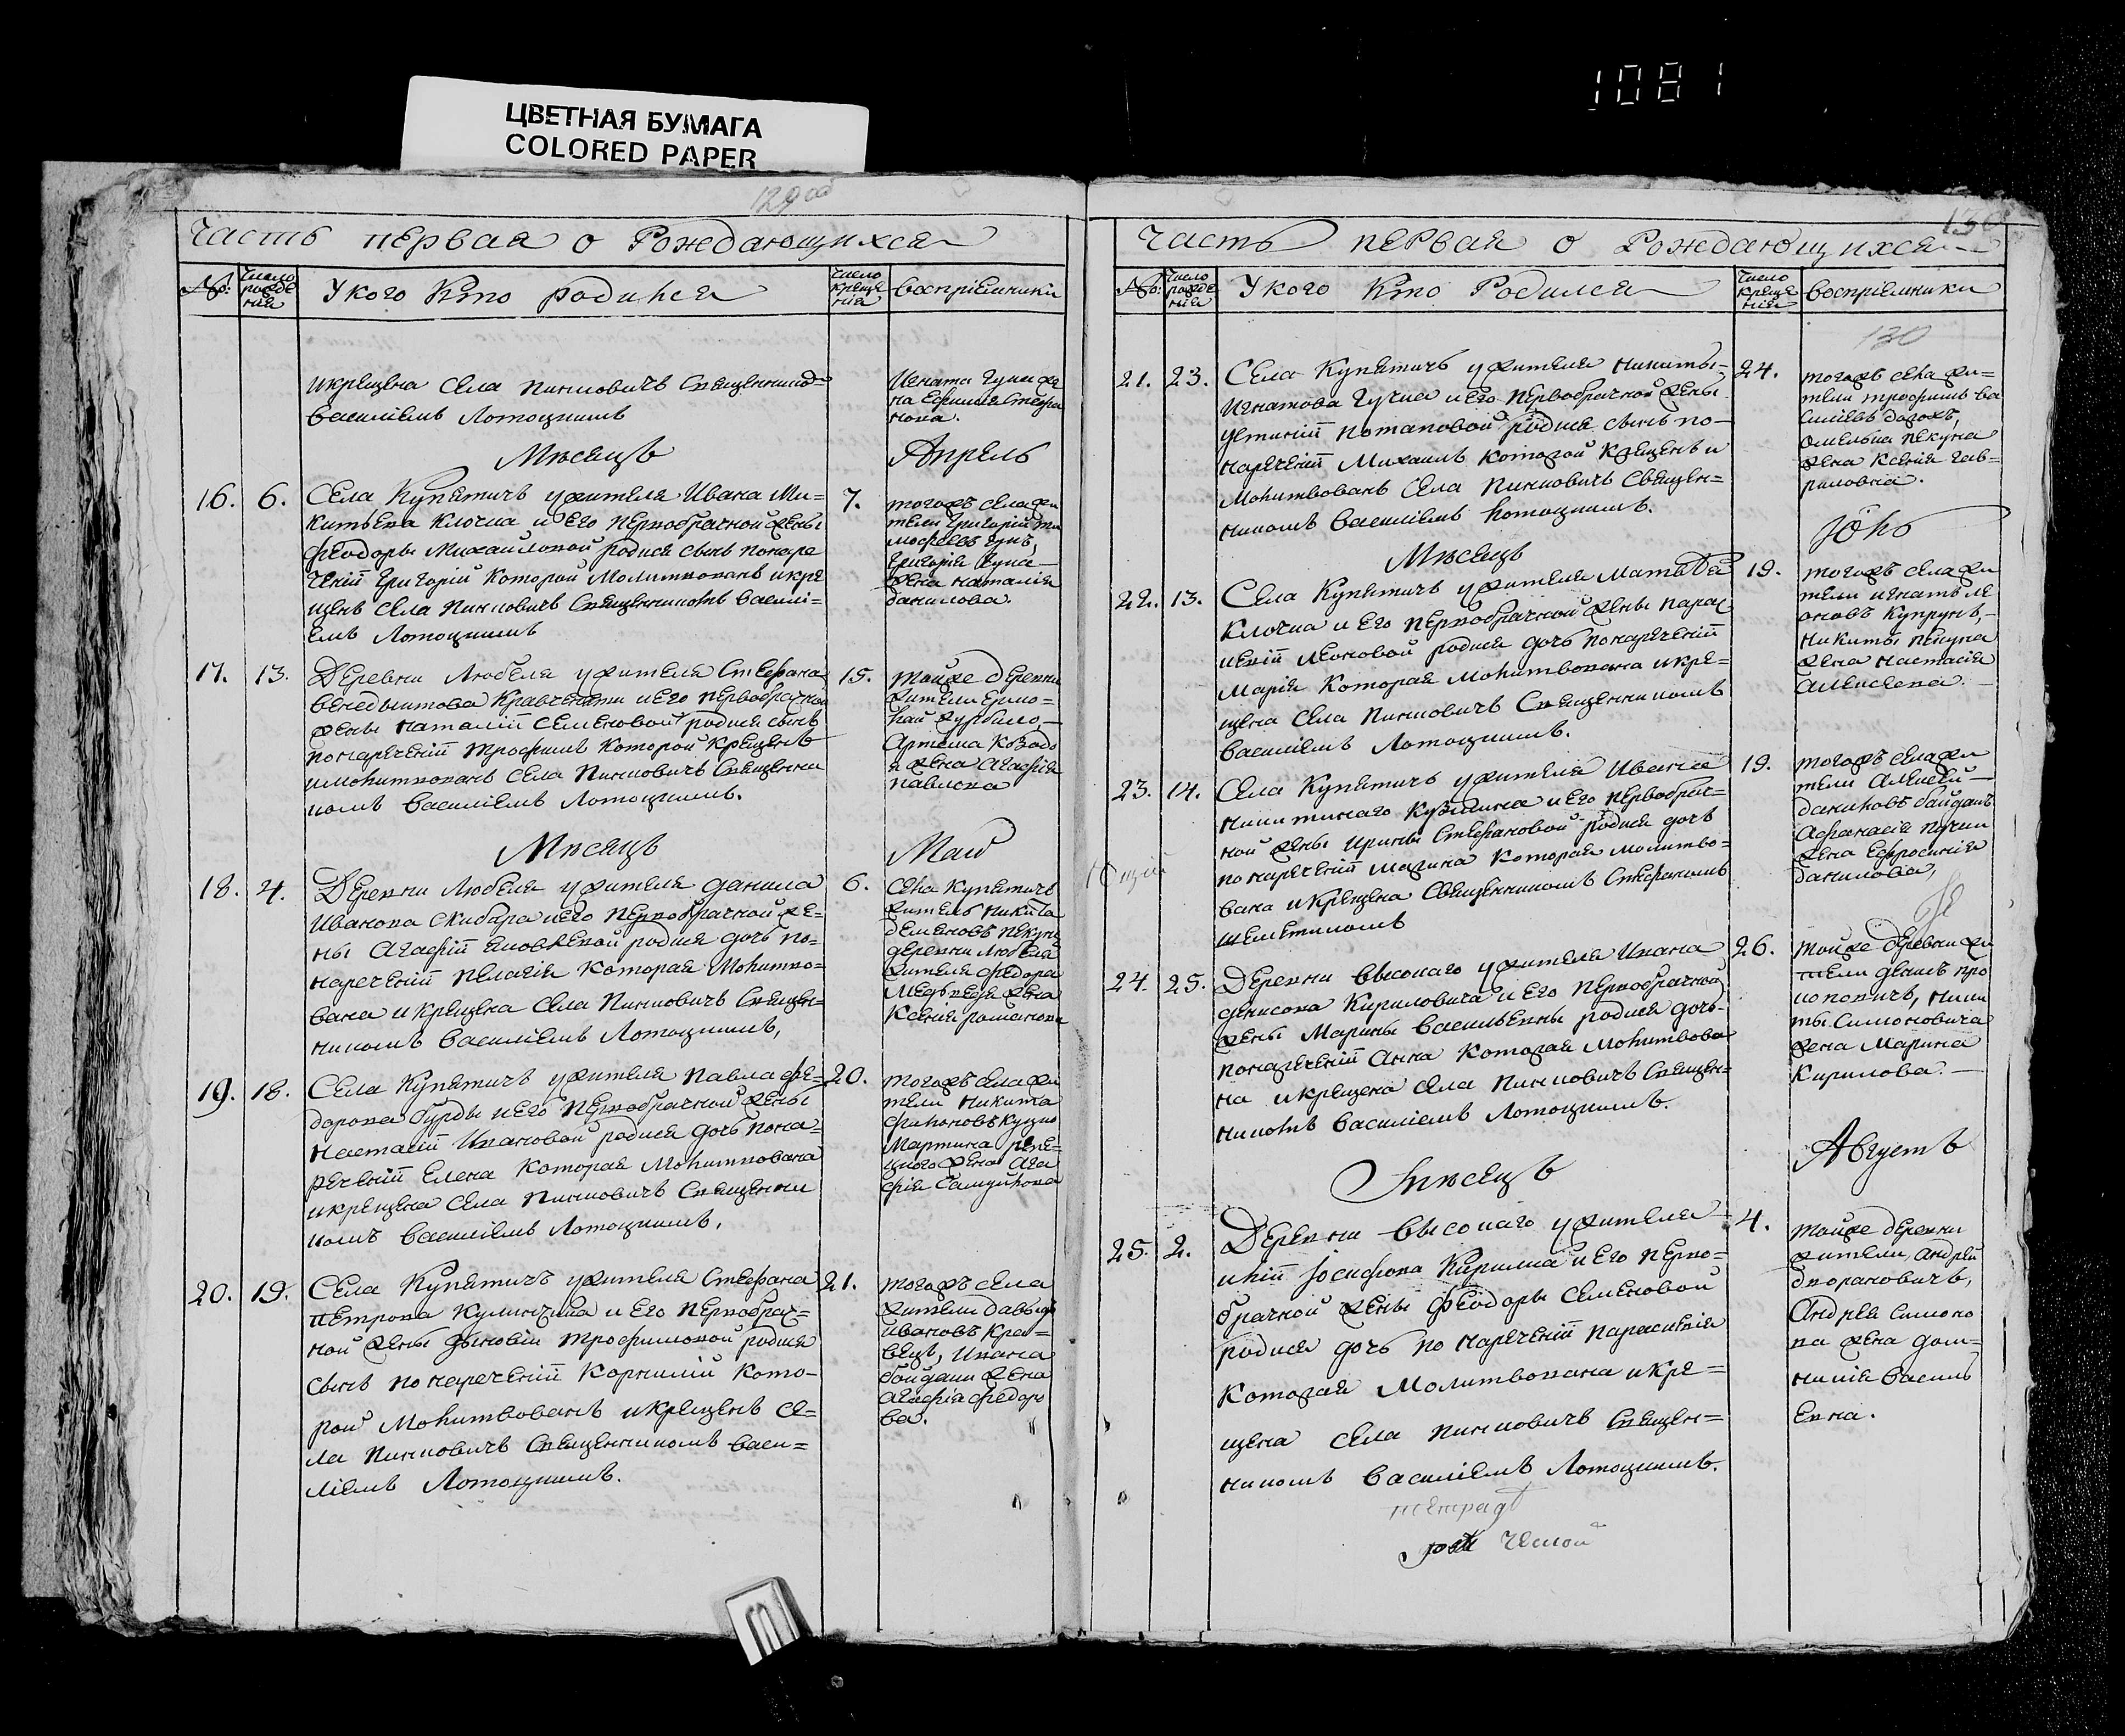 1081
ЦВЕТНАЯ БУМАГА
COLORED PAPER
129 об
Часть первая о Рождающихся
№: Число рожде ния
У кого кто родился
Число креще нія
воспріемники
и крещена села Пинковичъ Священнико=
Василіемъ Лотоцкимъ
жe
на Евфимія Стефа
нова.
Мѣсяцъ
Апрель
16. 6. Села Купятичъ у жителя Ивана Ми=
китьева Клочка и его первобрачной жены
Феодоры Михайловой родися сынъ по наре
ченіи Григорій которой молитвованъ и кре
щенъ села Пинковичъ Священникомъ Василі=
емъ Лотоцкимъ
7. тогожъ села жи
тели Григорій ти
мофеевъ
Григорія
жена Наталія
данилова.
17. 13. Деревни Любеля у жителя Стефана
Венедыктова и его первобрачной
жены Наталіи Семеновой родися сынъ
по нареченіи Трофимъ которой крещенъ
и молитвованъ села Пинковичъ Священни
комъ Василіемъ Лотоцкимъ.
15. тойже деревни
жители Ермо=
лай
Артема Козодо
я жена Агафія
Павлова
Мѣсяцъ
Май
18. 4. Деревни Любеля у жителя Данила
Иванова Скибара и его первобрачной же=
ны Агафіи родися дочъ по=
нареченіи Пелагія которая молитво=
вана и крещена села Пинковичъ Священ=
никомъ Василіемъ Лотоцкимъ,
6. села Купятичъ
житель Никита
деменовъ Пекун
деревни Любеля
жителя Федора
Медведя жена
Ксенія романова
19. 18. Села Купятичъ у жителя Павла Фе=
дорова Бурды и его первобрачной жены
Настасіи Ивановой родися дочъ по на=
реченіи Елена которая молитвована
и крещена села Пинковичъ Священни
комъ Василіемъ Лотоцкимъ.
20. тогожъ села жи
тели Никита
филоновъ
Мартина
жена Ага
фія Самуйлова
20. 19. Села Купятичъ у жителя Стефана
Петрова Куличика и его первобрач=
ной жены Зыновіи Трофимовой родися
сынъ по нареченіи Корнилій кото=
рой молитвованъ и крещенъ се=
ла Пинковичъ Священникомъ Васи=
ліемъ Лотоцкимъ.
21. тогожъ села
жители Давыдъ
Ивановъ Кра=
вецъ, Ивана
байдаки жена
Агафія Федоро
ва.
130
Часть первая о Рождающихся
№: Число рожде нія
У кого кто Родился
Число креще нія
воспріемники
130
21. 23. Села Купятичъ у жителя Никиты
Игнатова и его первобрачной жены
Устиніи Потаповой родися сынъ по=
нареченіи Михаилъ которой крещенъ и
молитвованъ села Пинковичъ Священ=
никомъ Василіемъ Лотоцкимъ.
24. тогожъ села жи=
тели трофимъ ва
силіевъ
Омелька Пекуна
жена Ксенія гав=
риловна.
Мѣсяцъ
Юль
22. 13. Села Купятичъ у жителя Матвея
Клочка и его первобрачной жены Парас
кевіи Леоновой родися дочъ по нареченіи
Марія которая молитвована и кре=
щена села Пинковичъ Священникомъ
Василіемъ Лотоцкимъ.
19. тогожъ села жи
тели Игнатъ ле
оновъ Купрунъ,
Никиты Пекуна
жена Настасія
Алексеева.
23. 14. Села Купятичъ у жителя Иванa
и его первобрач=
ной жены Ирины Стефановой родися дочъ
по нареченіи Марина которая молитво=
вана и крещена Священникомъ Стефаномъ
19. тогожъ села жи
тели Алексей
даниловъ байдакъ
Афанасія
жена Ефросинія
данилова,
24. 25. Деревни Высокаго у жителя Ивана
Денисова Кириловича и его первобрачной
жены Марины Васильевны родися дочъ
по нареченіи Анна которая молитвова
на и крещена села Пинковичъ Священ=
никомъ Василіемъ Лотоцкимъ.
26. тойже деревни жи
тели Денисъ про
коповичъ, Ники
ты Симоновича
жена Марина
Кирилова.
Мѣсяцъ
Августъ
25. 2. Деревни Высокаго у жителя
Іосифова Кирилка и его перво=
брачной жены Феодоры Семеновой
родися дочъ по нареченіи Параскевія
которая молитвована и кре=
щена села Пинковичъ Священ=
никомъ Василіемъ Лотоцкимъ.
4. тойже деревни
жители, Андрей
дворановичъ,
Андрея Симоно
ва жена Дом=
никія Василь
евна.